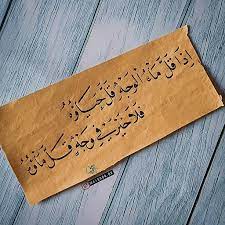 إِذَا قَلَّ مَاءُ الْوَجْهِ قَلَّ حَيَاؤُهُ
فَلَا خَيْرَ فِي وَجْهٍ قَلَّ مَاؤُهُ